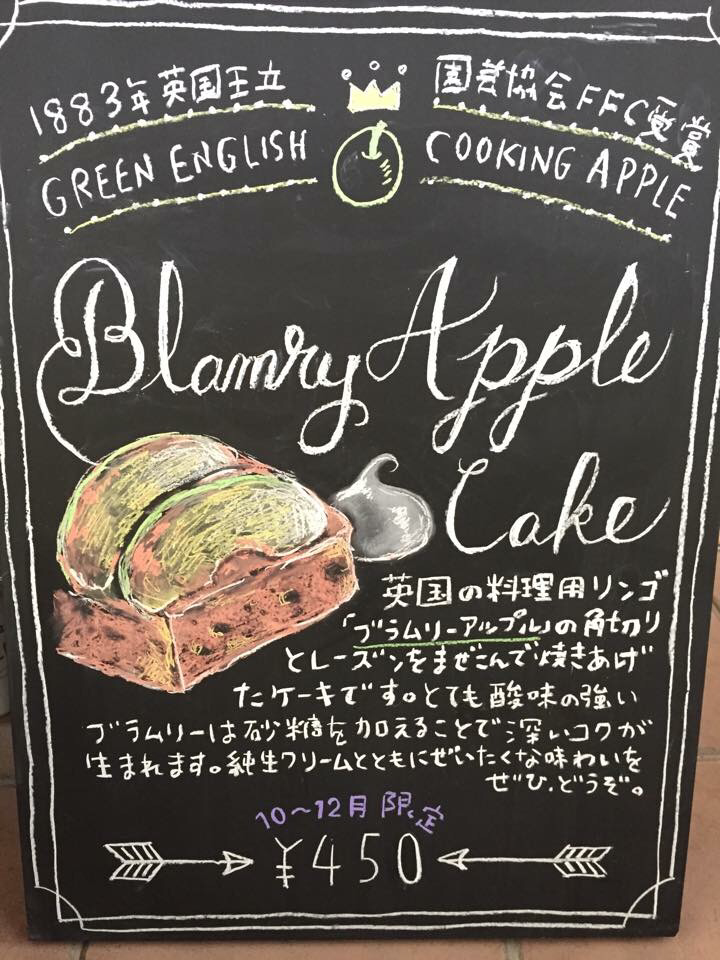 1883年英国王立 園芸協会FFC受賞
GREEN ENGLISH COOKING APPLE
Blamry Apple
Cake
英国の料理用リンゴ
「ブラムリーアップル」の角切り
とレーズンをまぜこんで焼きあげ
たケーキです。とても酸味の強い
ブラムリーは砂糖を加えることで深いコクが
生まれます。純生クリームとともにぜいたくな味わいを
ぜひ、どうぞ。
10〜12月限定
¥450